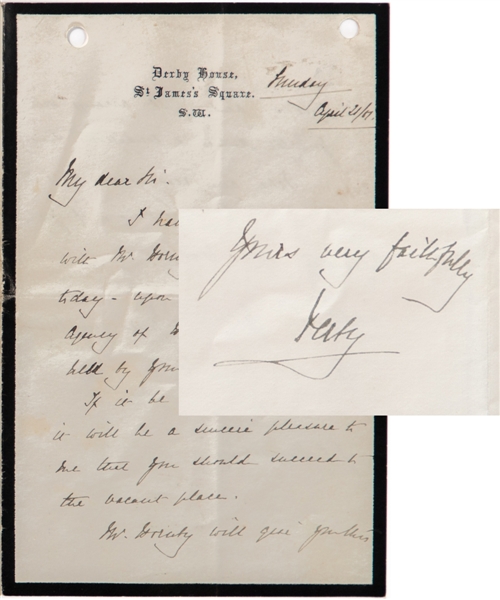 Derby House,
St James's Square.
S.W.
Sunday
April 21/01
My dear Sir.
I hav
with Mr. Hornby
today - upon
Agency of
held by your
If it be
it will be a sincere pleasure to
me that you should succeed to
the vacant place.
Mr. Hornby will give you this
Yours very faithfully
Derby